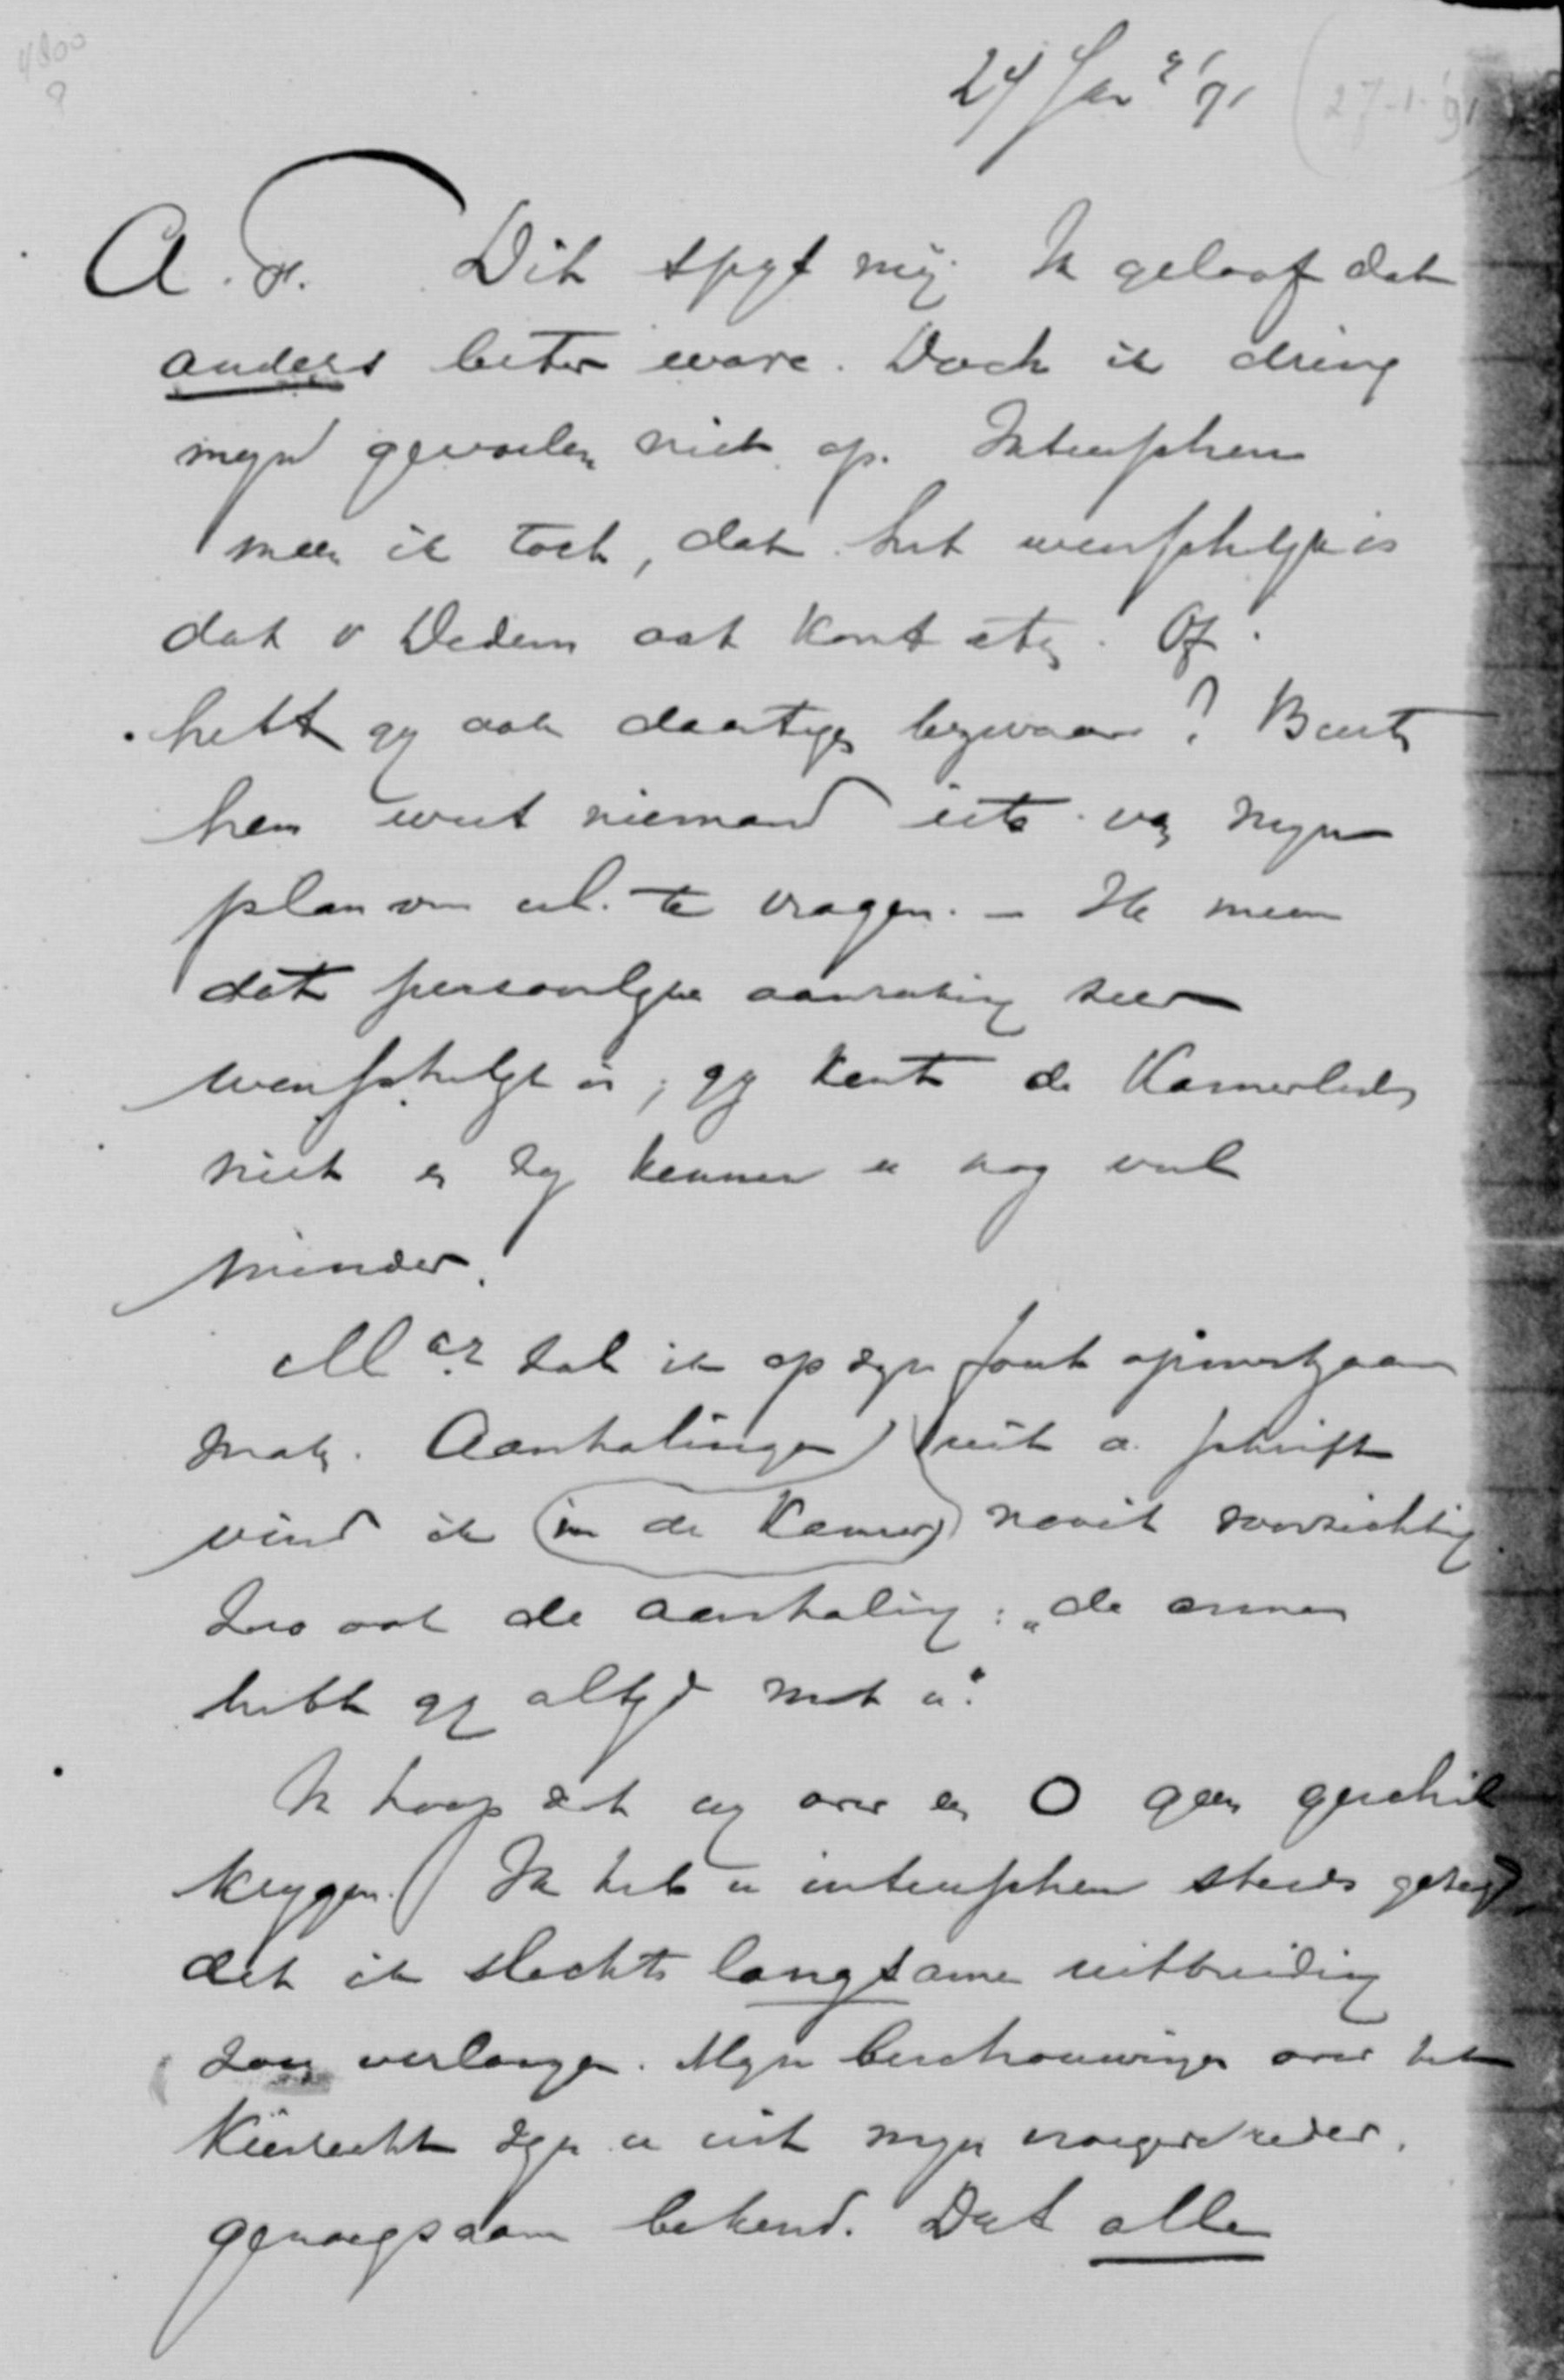 4800
8
27 Jan '91 (27-1-'91)
A. V. Dit spyt my. Ik geloof dat
anders beter ware. Doch ik dring
myn gevoelen niet op. Intusschen
meen ik toch, dat het wenschelyk is
dat v Dedem ook komt eten. Of
hebt gy ook daartegen bezwaar? Buiten
hem weet niemand iets van myn
plan om ul. te vragen. — Ik meen
dat persoonlyke aanraking zeer
wenschelyk is; gy kent de Kamerleden
niet en zy kennen u nog veel
minder.
zal ik op zyn fout opmerkzaam
maken. Aanhalingen uit d. schrift
vind ik (in de Kamer) nooit voorzichtig
Zoo ook de aanhaling: „de armen
hebt gy altyd met u."
Ik hoop dat wy over en O geen geschil
krygen. Ik heb u intusschen steeds gezegd
dat ik slechts langzame uitbreiding
zou verlangen. Myn beschouwingen over het
Kiesrecht zyn u uit myn vroegere reden
genoegzaam bekend. Dat alle